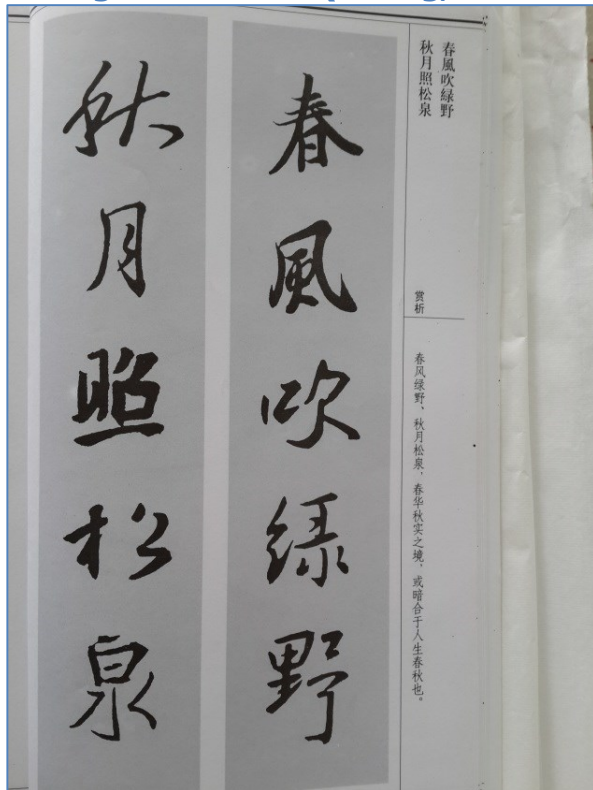 春風吹緑野
秋月照松泉
赏析
春风绿野、秋月松泉，春华秋实之境，或暗合于人生春秋也。
春風吹緑野
秋月照松泉